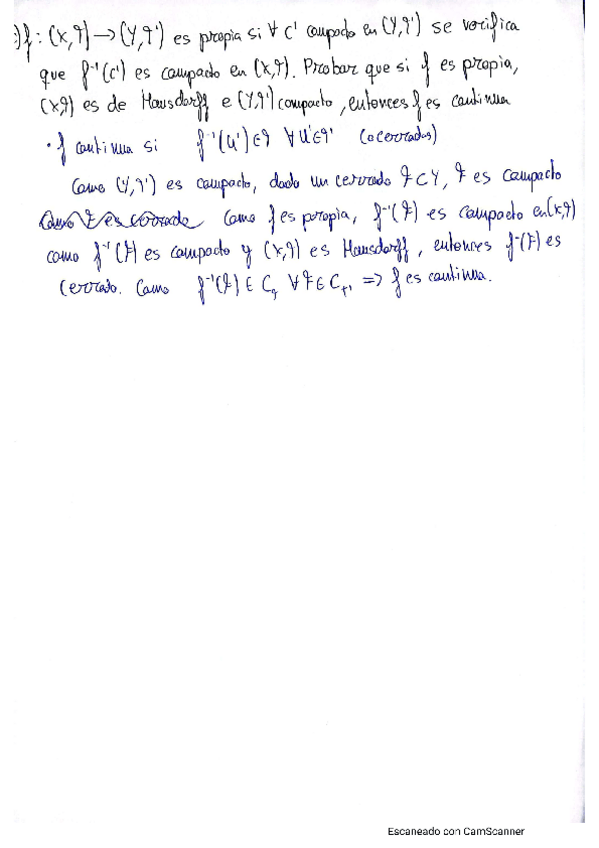 :) f : (X,T) → (Y,T') es propia si ∀ C' compacto en (Y,T') se verifica
que f⁻¹(C') es compacto en (X,T). Probar que si f es propia,
(X,T) es de Hausdorff e (Y,T') compacto, entonces f es continua
· f continua si f⁻¹(U') ∈ T ∀ U' ∈ T' (o cerrados)
Como (Y,T') es compacto, dado un cerrado F ⊂ Y, F es compacto
Como F es cerrado Como f es propia, f⁻¹(F) es compacto en (X,T)
como f⁻¹(F) es compacto y (X,T) es Hausdorff, entonces f⁻¹(F) es
cerrado. Como f⁻¹(F) ∈ C_T ∀ F ∈ C_T' => f es continua.
Escaneado con CamScanner